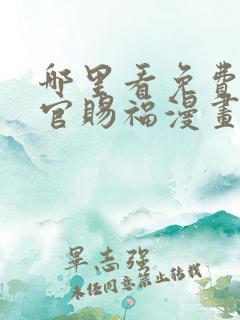 哪里看免费
官賜福漫畫
畢志强
未经同意禁止转载